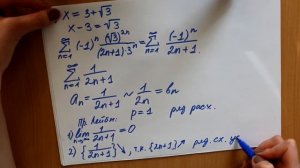 x = 3+√3
x - 3 = √3
∞ ∑ n=1 (-1)ⁿ (√3)²ⁿ / ((2n+1)·3ⁿ) = ∞ ∑ n=1 (-1)ⁿ / (2n+1)
∞ ∑ n=1 1/(2n+1)
aₙ = 1/(2n+1) ~ 1/(2n) = bₙ
p=1 ряд расх.
Пр. Лейбн:
1) lim n→∞ 1/(2n+1) = 0
2) {1/(2n+1)} ↘, т.к. {2n+1} ↗ ряд сх. ус